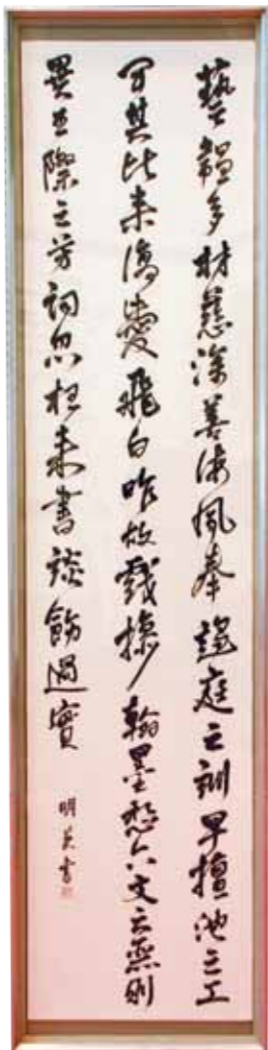 藝韞多材慈深善誨夙奉趨庭之訓早擅池之工
其比来偏愛飛白昨故戲操翰墨愁六文之無則
異五際之芳詞忽枉来書談飾過實
明英書